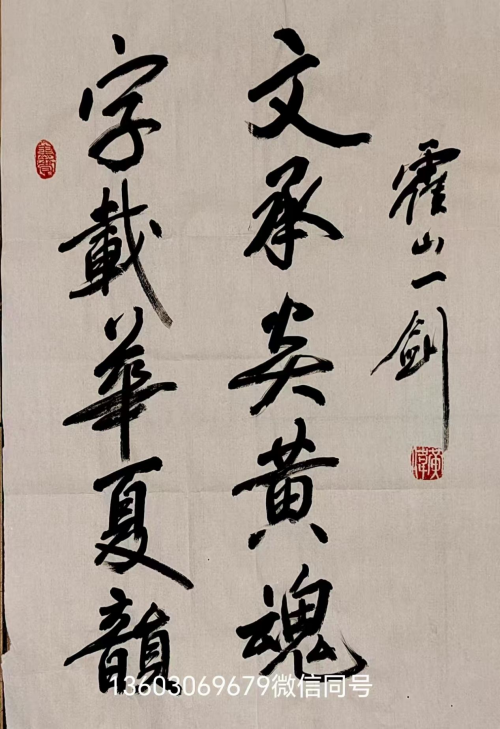 字載華夏韻
文承炎黄魂
霍山一劍
13603069679微信同号